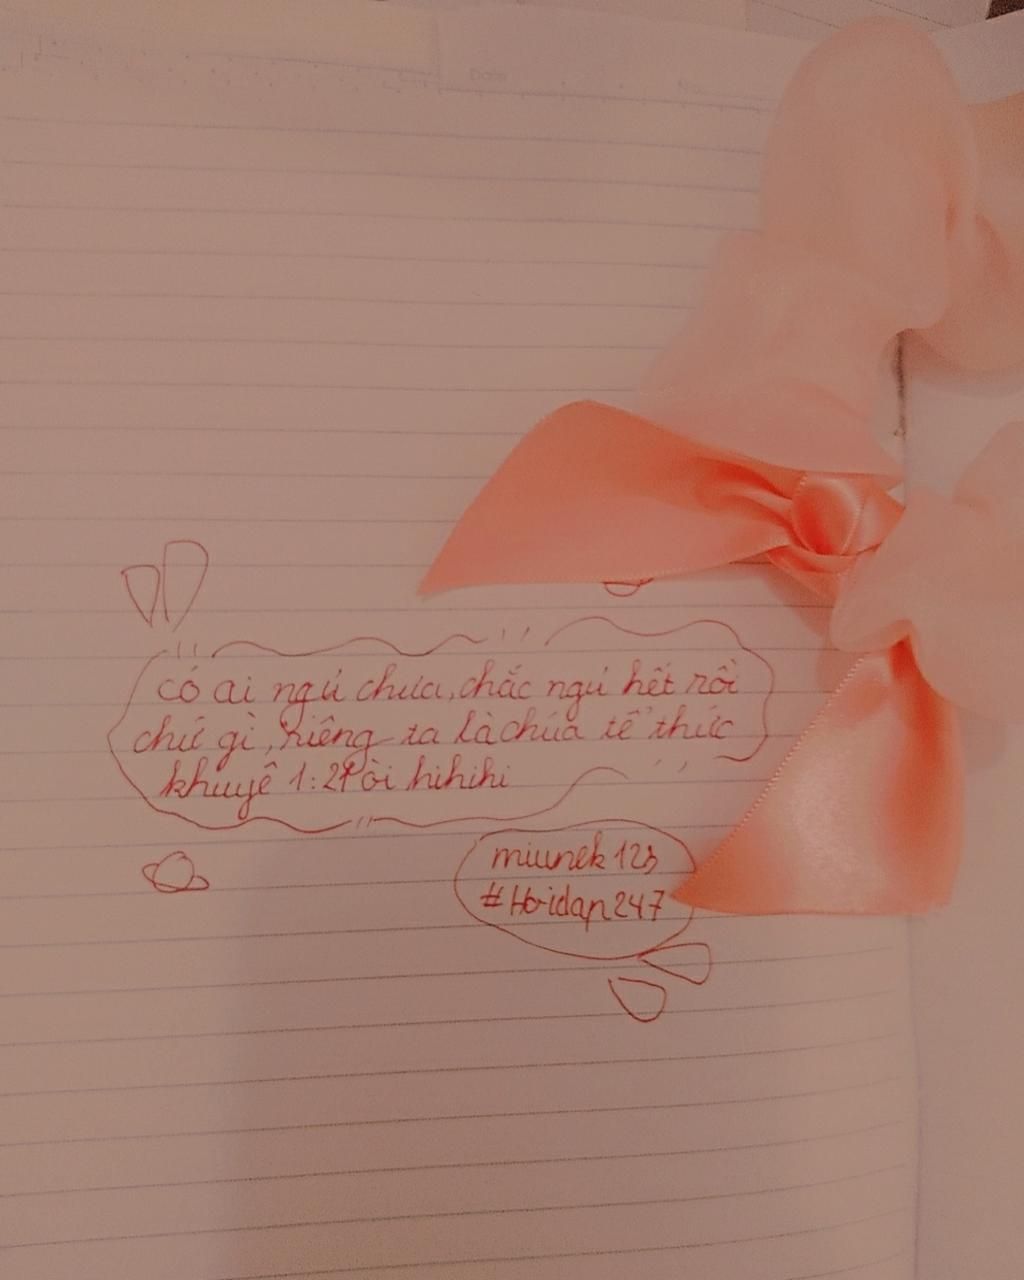 Date
No.
có ai ngủ chưa, chắc ngủ hết rồi
chứ gì, riêng ta là chúa tể thức
khuyê 1:21 òi hihihi
miunek 123
#Hoidap247